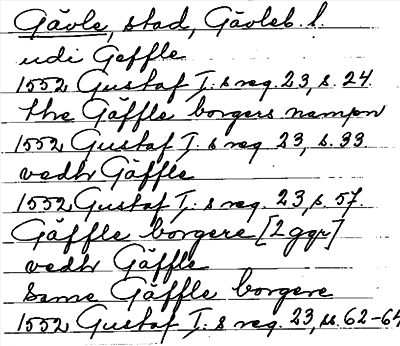 Gävle, stad, Gävleb. l.
udi Geffle
1552 Gustaf I:s reg. 23, s. 24.
the Gäffle borgers nempn
1552 Gustaf I:s reg. 23, s. 33.
vedh Gäffle
1552 Gustaf I:s reg. 23, s. 57.
Gäffle borgere [2 ggr]
vedh Gäffle
same Gäffle borgere
1552 Gustaf I:s reg. 23, ss. 62-64